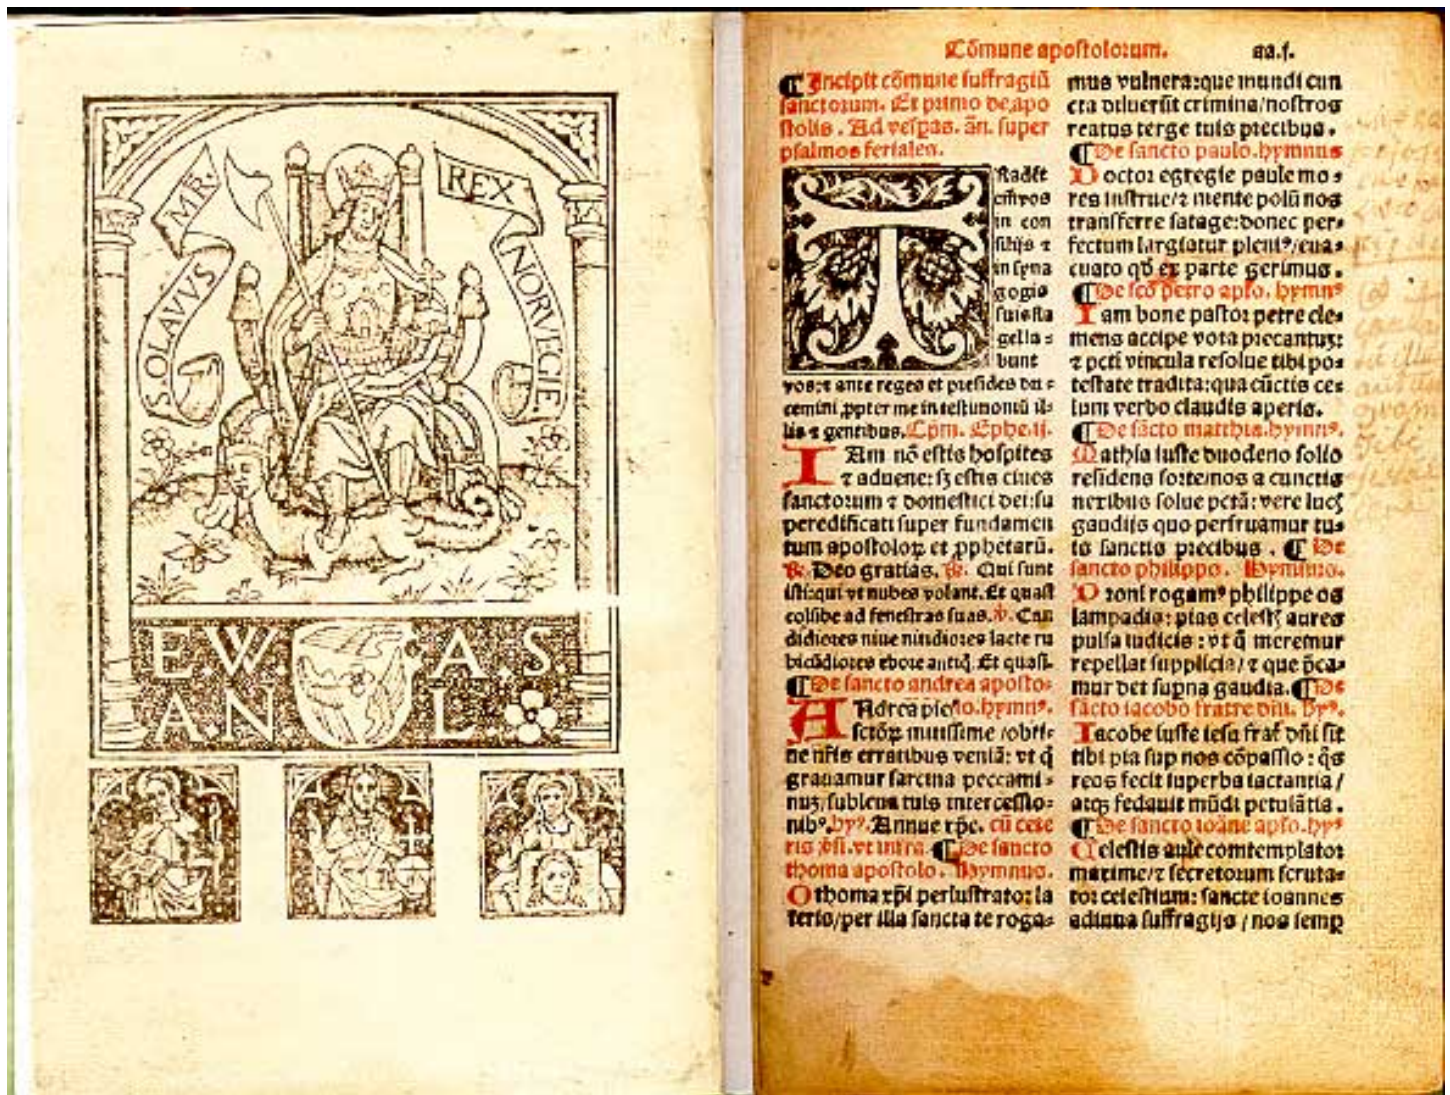 S. OLAVVS MR. REX NORVEGIE.
E.W. A.S.
A.N. L.
Cōmune apostolorum. aa.j.
¶ Incipit cōmune suffragiū
sanctorum. Et primo de apo
stolis. Ad vesꝑas. añ. super
psalmos feriales.
Tradēt
em̄ vos
in con
silijs ⁊
in syna
gogis
suis fla
gella⸗
bunt
vos:⁊ ante reges et presides du⸗
cemini ꝓpter me in testimoniū il⸗
lis ⁊ gentibus. Cpm. Ephe.ij.
IAm nō estis hospites
⁊ aduene: sꝫ estis ciues
sanctorum ⁊ domestici dei: su
peredificati super fundamen
tum apostoloꝝ et ꝓphetarū.
℟. Deo gratias. ℟. Qui sunt
isti: qui vt nubes volant. Et quasi
colūbe ad fenestras suas. ℣. Can
didiores niue nitidiores lacte ru
bicūdiores ebore antiq̄. Et quasi.
¶ De sancto andrea aposto⸗
ANdrea pie lo. hymnꝰ.
sctōꝝ mitissime / obti⸗
ne nr̄is erratibus veniā: vt q̄
grauamur sarcina peccami⸗
nuꝫ / subleua tuis intercessio⸗
nibꝰ. hyꝰ. Annue xp̄e. cū cete
ris ℣si. vt infra. ¶ De sancto
thoma apostolo. Hymnus.
O thoma xp̄i perlustrator la
teris / per illa sancta te roga⸗
mus vulnera: que mundi cun
cta diluerūt crimina / nostros
reatus terge tuis precibus.
¶ De sancto paulo. hymnus
Doctor egregie paule mo⸗
res instrue / ⁊ mente polū nos
transferre satage: donec per⸗
fectum largiatur plenꝰ / eua⸗
cuato qd̄ ex parte gerimus.
¶ De scō petro apso. hymnꝰ
Iam bone pastor petre cle⸗
mens accipe vota precantuꝫ:
⁊ pcti vincula resolue tibi po⸗
testate tradita: qua cūctis ce⸗
lum verbo claudis aperis.
¶ De sācto matthia. hymnꝰ.
Mathia iuste duodeno solio
residens sortemos a cunctis
nexibus solue pctā: vere lucꝭ
gaudiis quo perfruamur tu⸗
is sanctis precibus. ¶ De
sancto philippo. Hymnus.
Proni rogamꝰ philippe os
lampadis: pias celestꝭ aures
pulsa iudicis: vt q̄ meremur
repellat supplicia / ⁊ que p̄ca⸗
mur det suꝑna gaudia. ¶ De
sācto iacobo fratre dn̄i. hyꝰ.
Iacobe iuste iesu frat̄ dn̄i sit
tibi pia sup nos cōpassio: q̄s
reos fecit superba iactantia /
atqꝫ fedauit mūdi petulātia.
¶ De sancto ioāne apso. hyꝰ
Celestis aule comtemplator
maxime / ⁊ secretorum scruta⸗
tor celestium: sancte ioannes
adiuua suffragijs / nos semꝑ